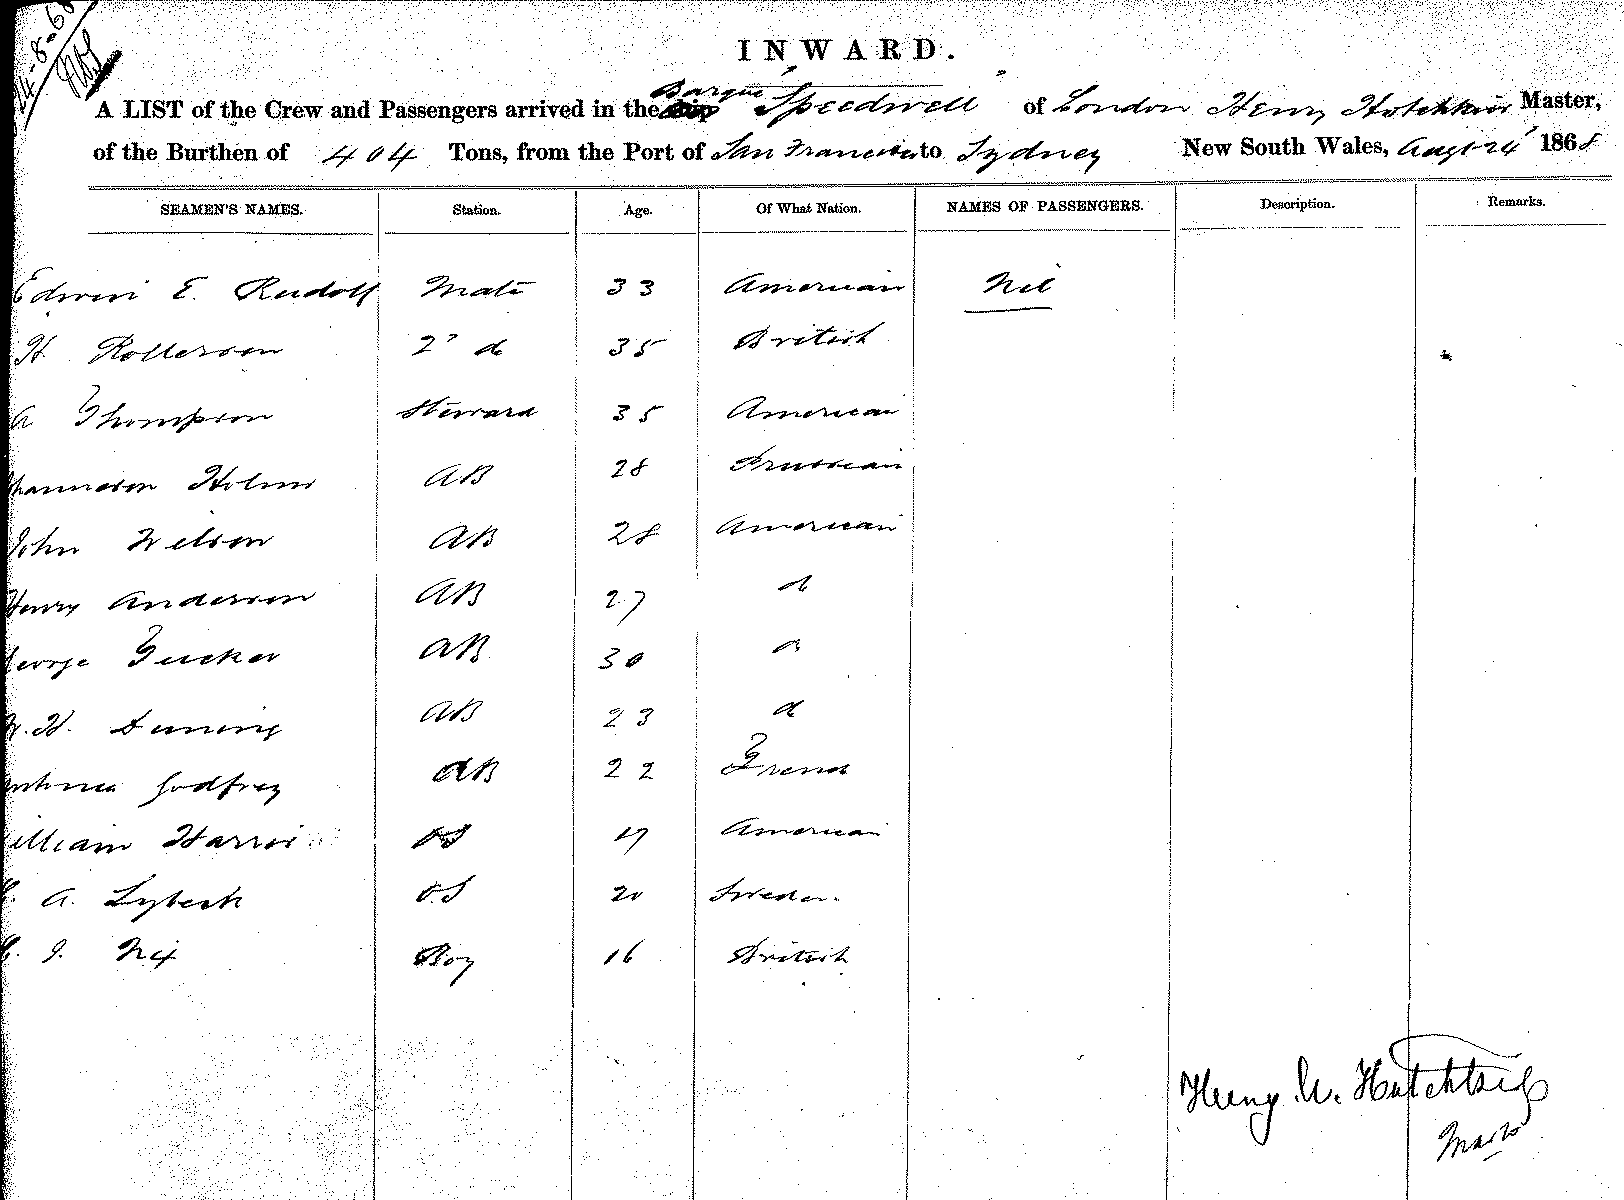 24-8-68
INWARD.
A LIST of the Crew and Passengers arrived in the Barque "Speedwell" of London Henry Hotchkiss Master,
of the Burthen of 404 Tons, from the Port of San Francisco to Sydney New South Wales, Augt 24 1868
SEAMEN'S NAMES. Station. Age. Of What Nation. NAMES OF PASSENGERS. Description. Remarks.
Edwin E. Rudolf Mate 33 American Nil
H Rollerson 2d do 35 British
A Thompson Steward 35 American
Holm AB 28 Prussian
John Wilson AB 28 American
Henry Anderson AB 27 do
George Tucker AB 30 do
H. AB 23 do
Godfrey AB 22 French
William Harris OS 17 American
A. Lybeck O.S 20 Sweden
J. Nix Boy 16 British
Henry W. Hotchkiss
Master